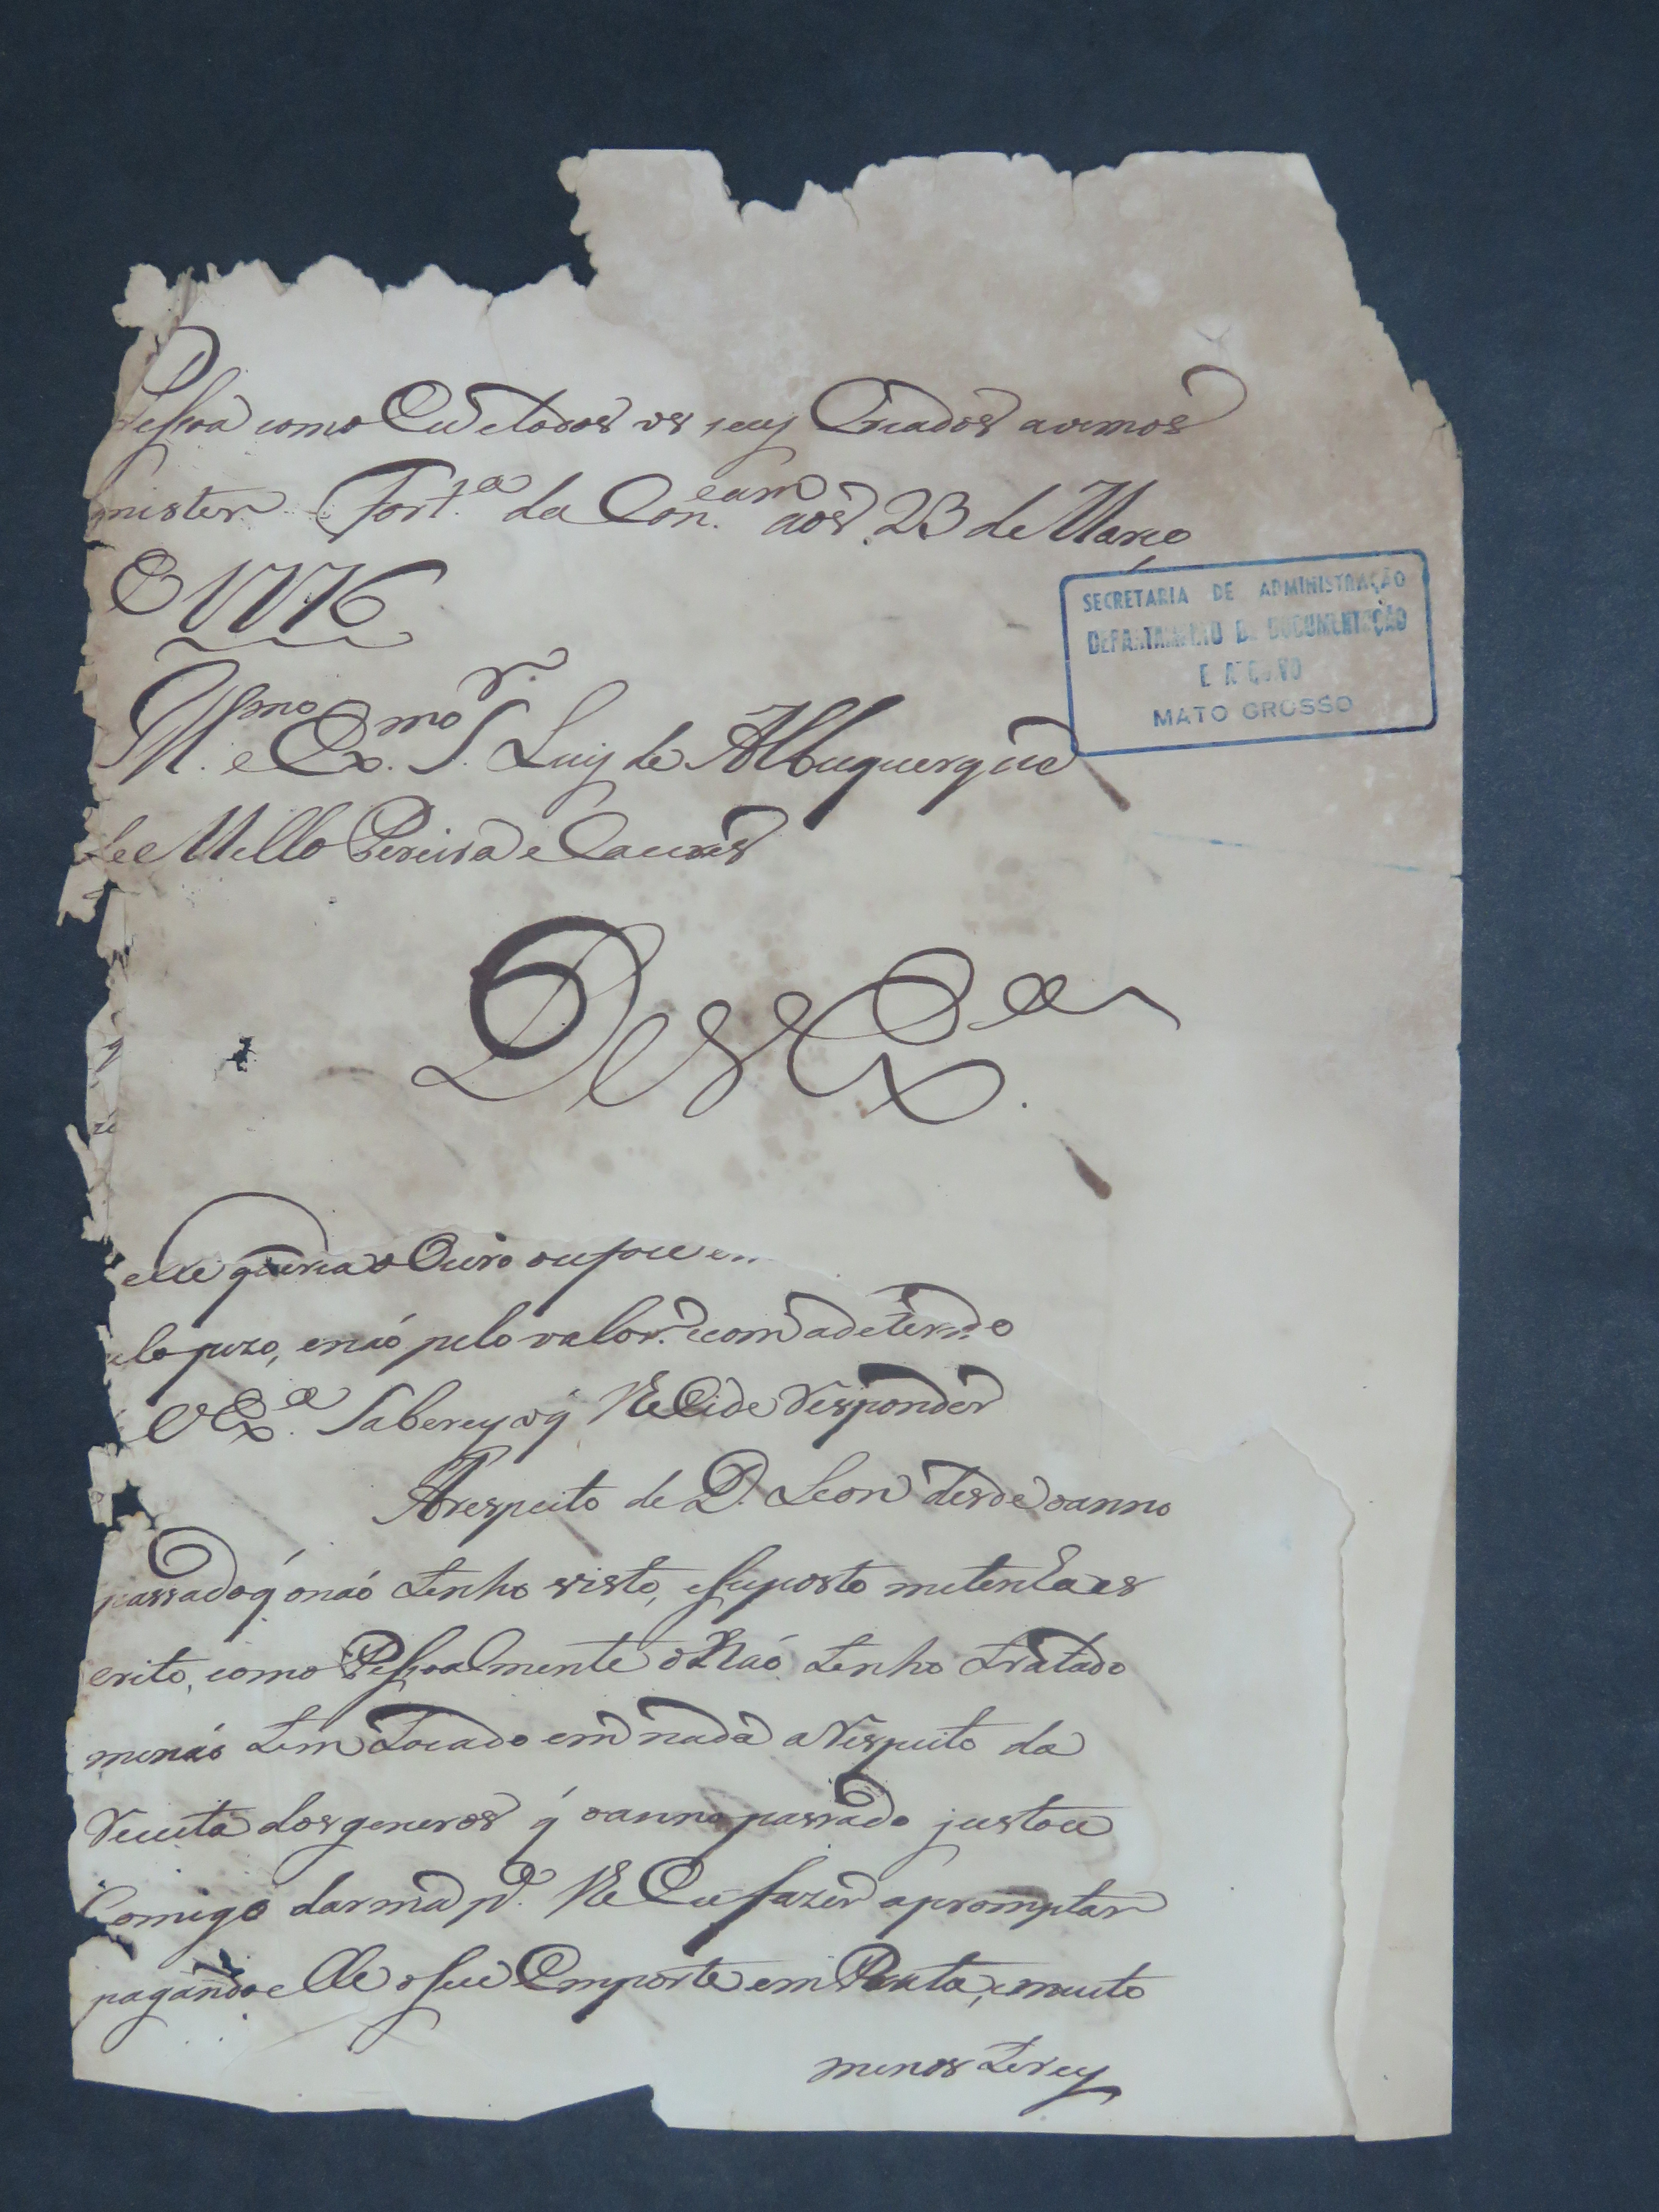 Pessoa como Eu e todos os seus Criados avemos
mister Fort.ª da Con.cam aos 23 de Março
1776
SECRETARIA DE ADMINISTRAÇÃO
DEPARTAMENTO DE DOCUMENTAÇÃO
E ARQUIVO
MATO GROSSO
Ill.mo e Ex.mo S.r Luis de Albuquerque
de Mello Pereira e Caceres
De V Ex.ª
elle queria o Ouro
pelo pezo, e náo pelo valor. e com a detern.
V Ex.ª Saberey o q̃ lhe Eide Responder
A respeito de D. Leon desde o anno
passado q́ o náo tenho visto, e suposto me tenha es
crito, como Pessoalmente o Náo tenho tratado
me náo tem tocado em nada a Respeito da
Receita dos generos q́ o anno passado justou
Comigo dar ma p.ª lhe Eu fazer apromptar
pagando elle o seu Emporte em Prata, e muito
menos terey